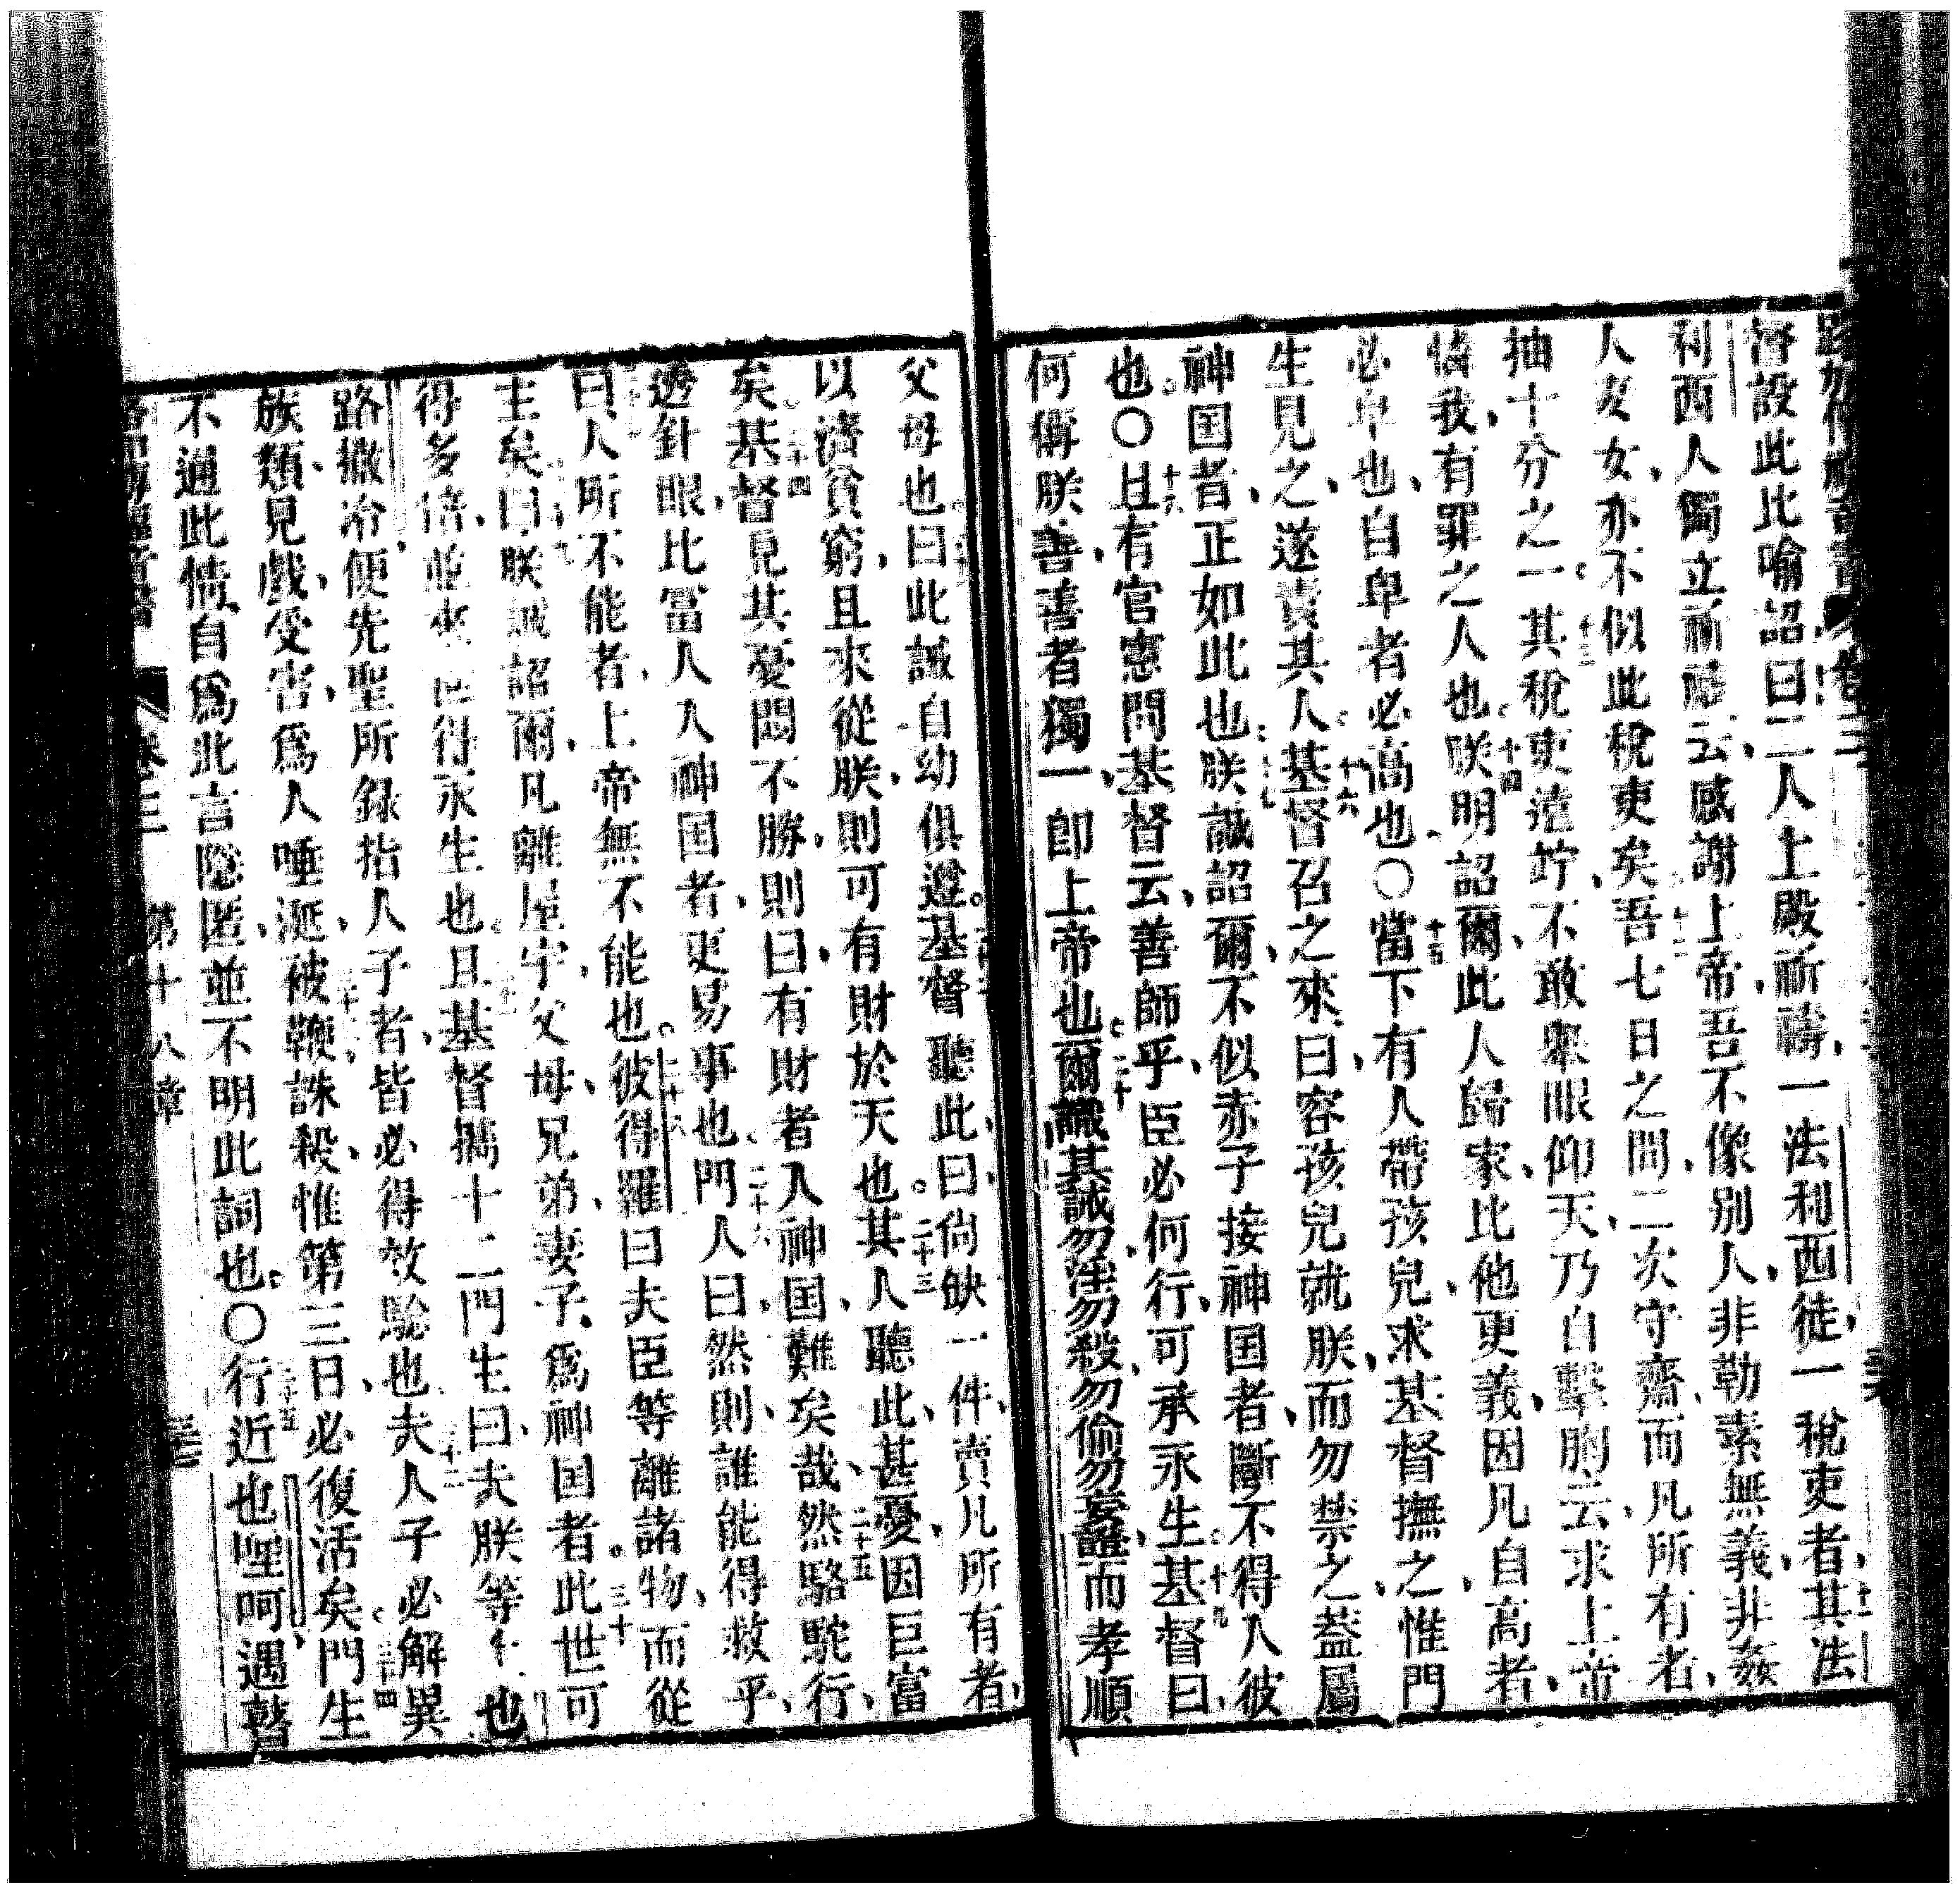 督設此比喻詔曰二人上殿祈禱一法利西徒一稅吏者十一其法
利西人獨立祈禱云感謝上帝吾不像別人非勒索無義非姦
人妻女亦不似此稅吏矣十二吾七日之間二次守齋而凡所有者
抽十分之一十三其稅吏遠竚不敢舉眼仰天乃自擊胸云求上帝
恤我有罪之人也十四朕明詔爾此人歸家比他更義因凡自高者
必卑也自卑者必高也〇十五當下有人帶孩兒求基督撫之惟門
生見之遂責其人十六基督召之來曰容孩兒就朕而勿禁之蓋屬
神国者正如此也十七朕誠詔爾不似赤子接神国者斷不得入彼
也〇十八且有官憲問基督云善師乎臣必何行可承永生十九基督曰
何稱朕善善者獨一卽上帝也二十爾識其誡勿淫勿殺勿偷勿妄證而孝順
父母也曰此誡自幼俱遵基督聽此曰尙缺一件賣凡所有者
以濟貧窮且來從朕則可有財於天也二十三其人聽此甚憂因巨富
矣二十四基督見其憂悶不勝則曰有財者入神国難矣哉二十五然駱駝行
透針眼比富人入神国者更易事也二十六門人曰然則誰能得救乎
曰人所不能者上帝無不能也二十八彼得羅曰夫臣等離諸物而從
主矣二十九曰朕誠詔爾凡離屋宇父母兄弟妻子爲神国者三十此世可
得多倍並來世得永生也三十一且基督攜十二門生曰夫朕等𠆢也
路撒冷便先聖所錄指人子者皆必得效驗也三十二夫人子必解異
族類見戲受害爲人唾涎三十三被鞭誅殺惟第三日必復活矣三十四門生
不通此情自爲此言隱匿並不明此詞也〇三十五行近也哩呵遇瞽
卷三 第十八章